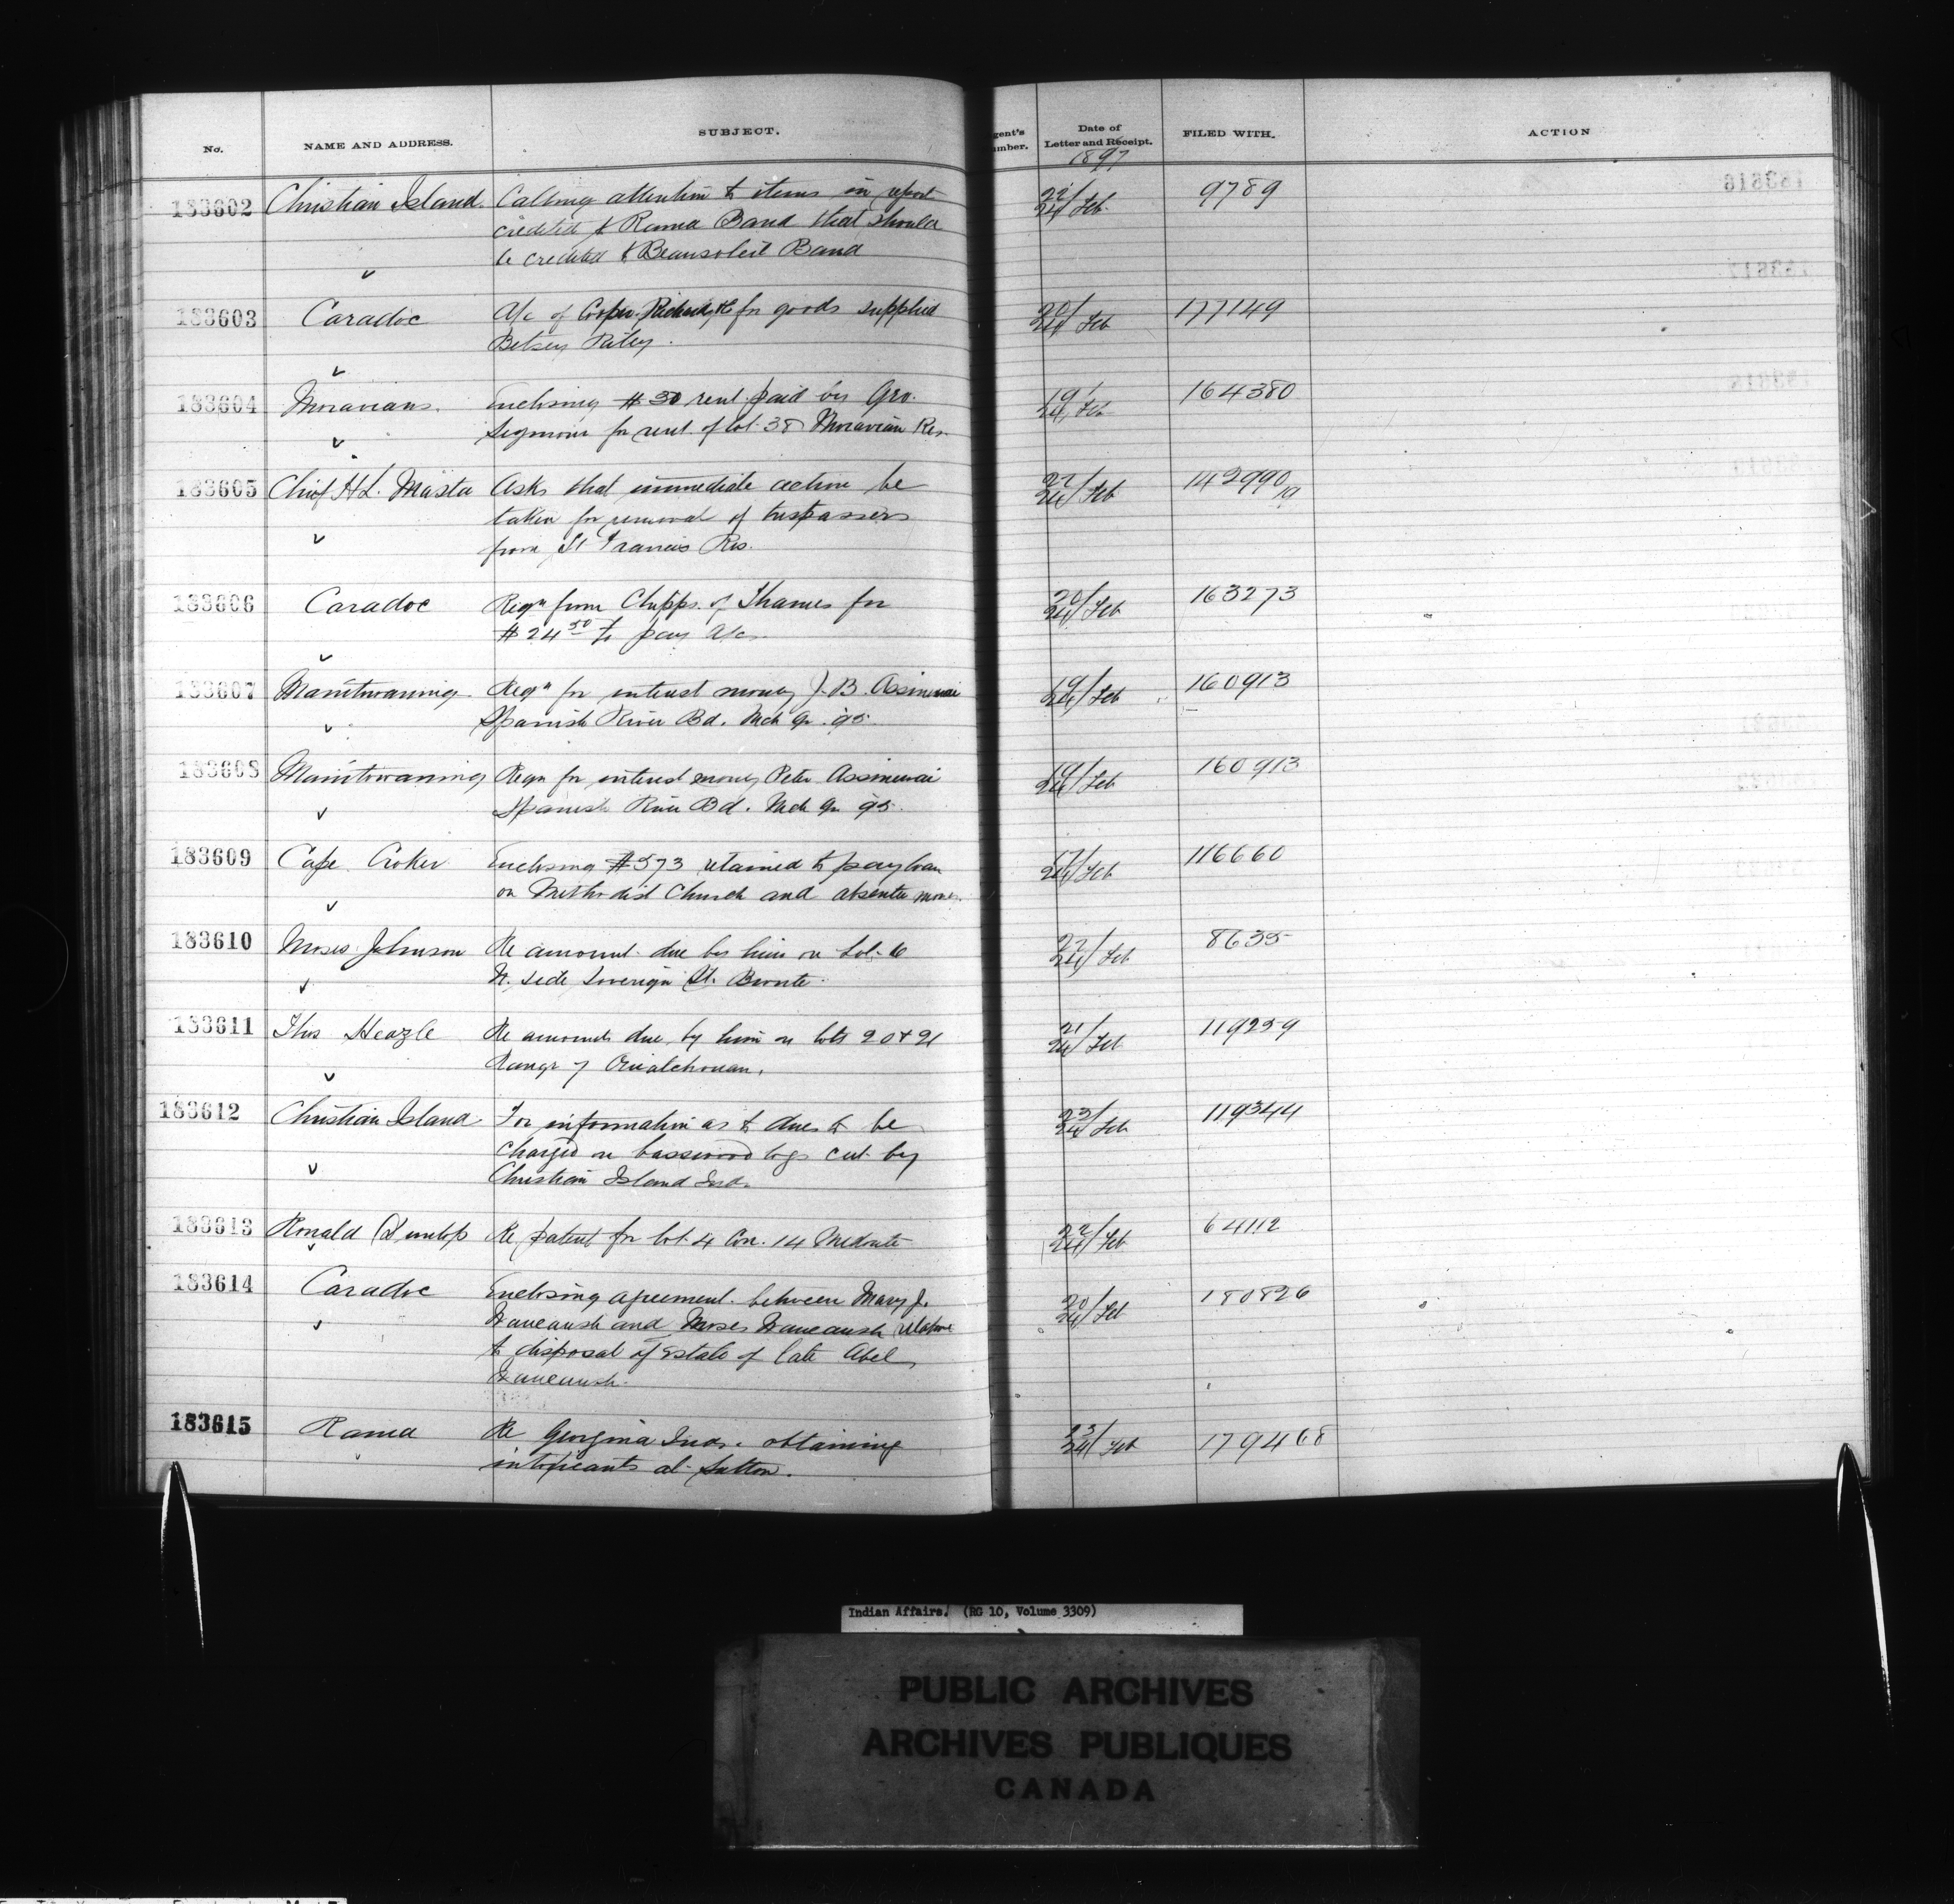 No. NAME AND ADDRESS. SUBJECT. Date of Letter and Receipt. FILED WITH. ACTION
1897
183602 Christian Island. Calling attention to items in report 22/24 Feb. 9789
credited to Rama Band that should
be credited to Beausoleil Band
183603 Caradoc A/c of Cooper Richards & for goods supplied 20/24 Feb 177149
Betsey Riley.
183604 Moravians. Enclosing $30 rent paid by Geo. 19/24 Feb 164380
Seymour for rent of lot 38 Moravian Res.
183605 Chief H.L. Masta Asks that immediate action be 22/24 Feb 142990/19
taken for removal of trespassers
from St Francis Res.
183606 Caradoc Reqn from Chipps. of Thames for 20/24 Feb 163273
$24 50 to pay a/c.
183607 Manitowaning Reqn for interest money J.B. Assinewai 19/24 Feb 160913
Spanish River Bd. Mch qr. 95.
183608 Manitowaning Reqn for interest money Peter Assinewai 19/24 Feb 160913
Spanish River Bd. Mch qr 95.
183609 Cape Croker Enclosing $573 retained to pay loan 17/24 Feb 116660
on Methodist Church and absentee money.
183610 Moses Johnson Re amount due by him on Lot 6 22/24 Feb 8635
N. side Sovereign St. Bronte.
183611 Thos Heazle Re amounts due by him on lots 20 & 21 21/24 Feb 119259
Range 7 Ouiatchouan.
183612 Christian Island For information as to dues to be 23/24 Feb 119344
charged on basswood logs cut by
Christian Island Inds.
183613 Ronald Dunlop Re patent for lot 4 Con. 14 Medonte 22/24 Feb 64112
183614 Caradoc Enclosing agreement between Mary J. 20/24 Feb 180826
Waucaush and Moses Waucaush relative
to disposal of Estate of late Abel
Waucaush.
183615 Rama Re Georgina Inds. obtaining 23/24 Feb 179468
intoxicants at Sutton.
Indian Affairs. (RG 10, Volume 3309)
PUBLIC ARCHIVES
ARCHIVES PUBLIQUES
CANADA